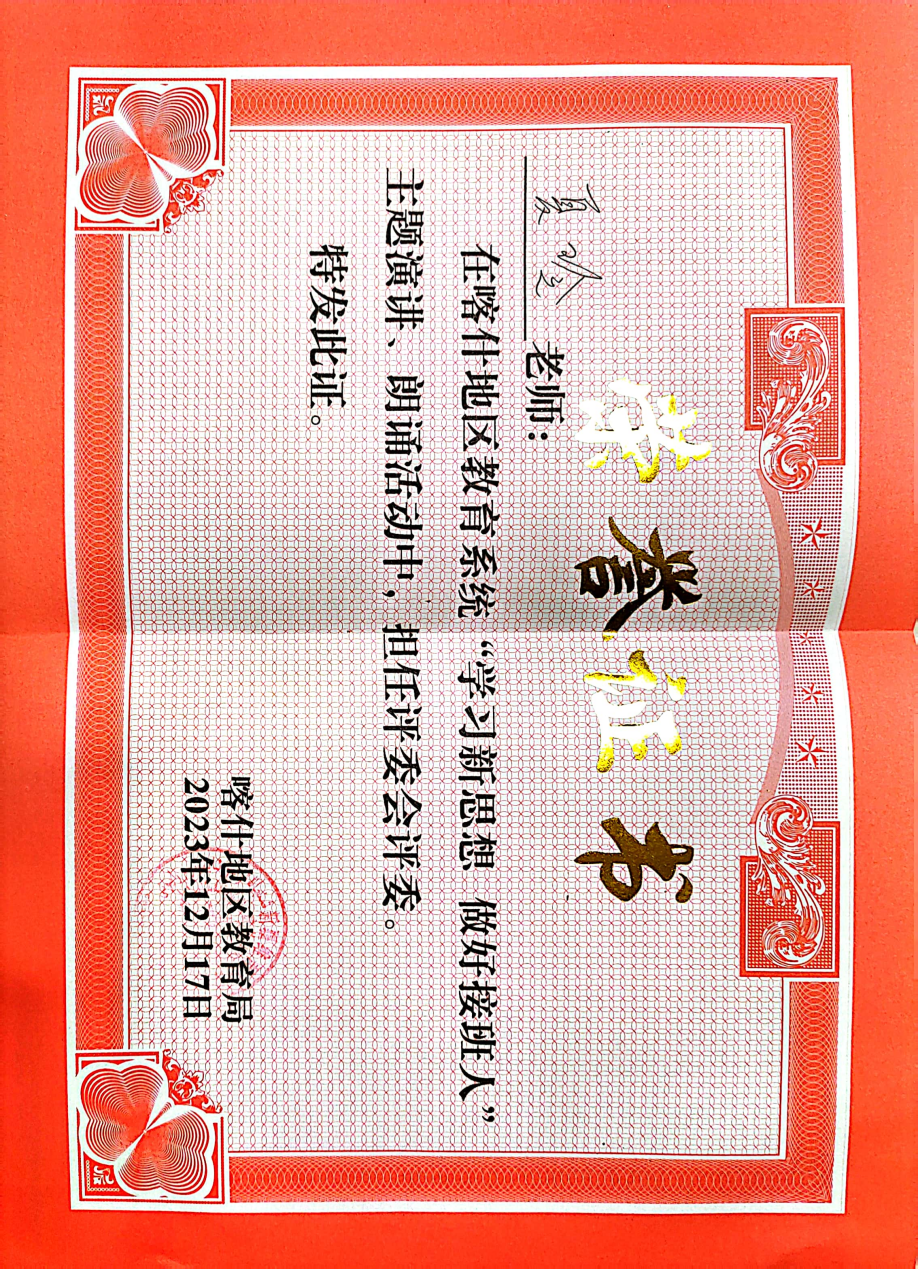 荣誉证书
夏 老师：
在喀什地区教育系统“学习新思想 做好接班人”
主题演讲、朗诵活动中，担任评委会评委。
特发此证。
喀什地区教育局
2023年12月17日